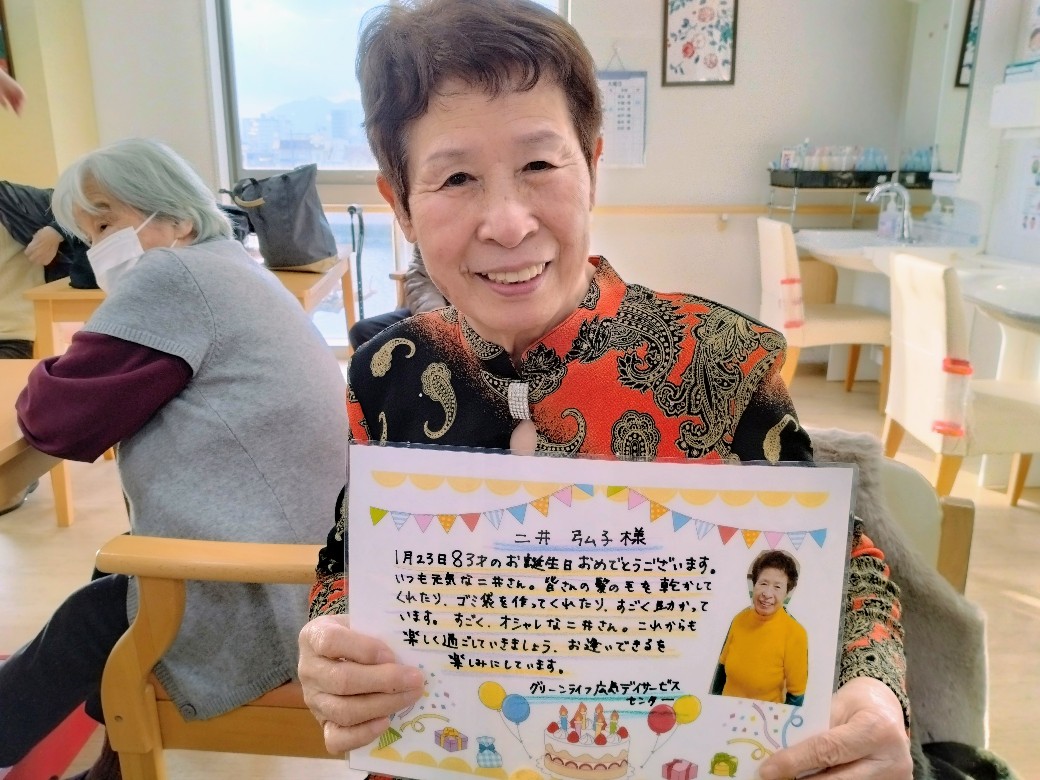 二井 弘子様
1月23日83才のお誕生日おめでとうございます。
いつも元気な二井さん。皆さんの髪の毛を乾かして
くれたり、ゴミ袋を作ってくれたり、すごく助かって
います。すごく、オシャレな二井さん。これからも
楽しく過ごしていきましょう。お逢いできるを
楽しみにしています。
グリーンライフ広島デイサービス
センター